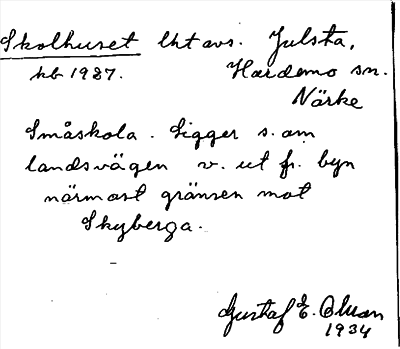 Skolhuset lht avs. Julsta,
kb 1937. Hardemo sn.
Närke
Småskola. Ligger s. om
landsvägen v. ut fr. byn
närmast gränsen mot
Skyberga.
Gustaf E. Olsson
1934